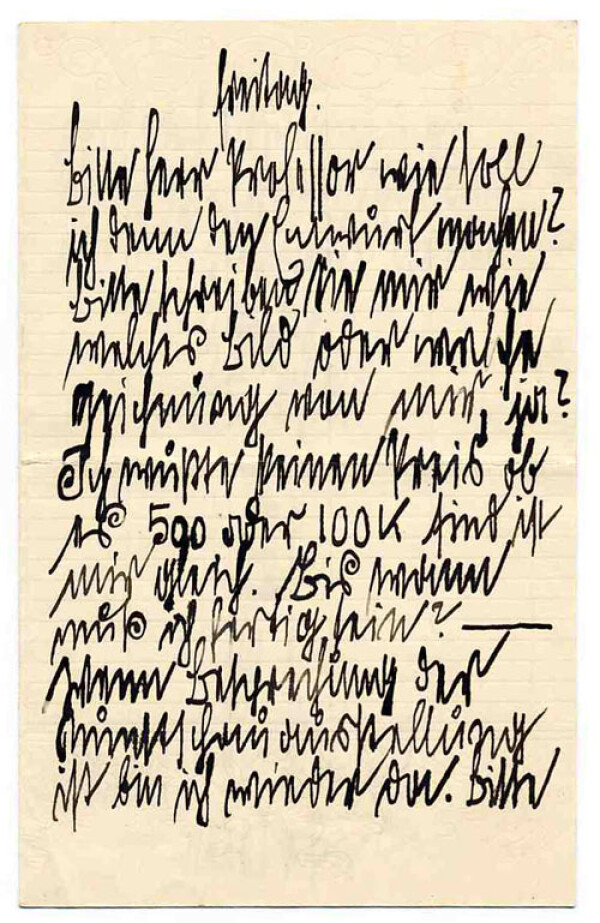 Freitag.
Bitte Herr Professor wie soll
ich denn den Entwurf machen?
Bitte schreiben Sie mir wie
welches Bild oder welche
Zeichnung von mir, ja?
Ich wußte keinen Preis ob
es 500 oder 100 K sind ist
mir gleich. Bis wann
muß ich fertig sein? —
Wenn Besprechung der
Kunstschauausstellung
ist bin ich wieder da. Bitte